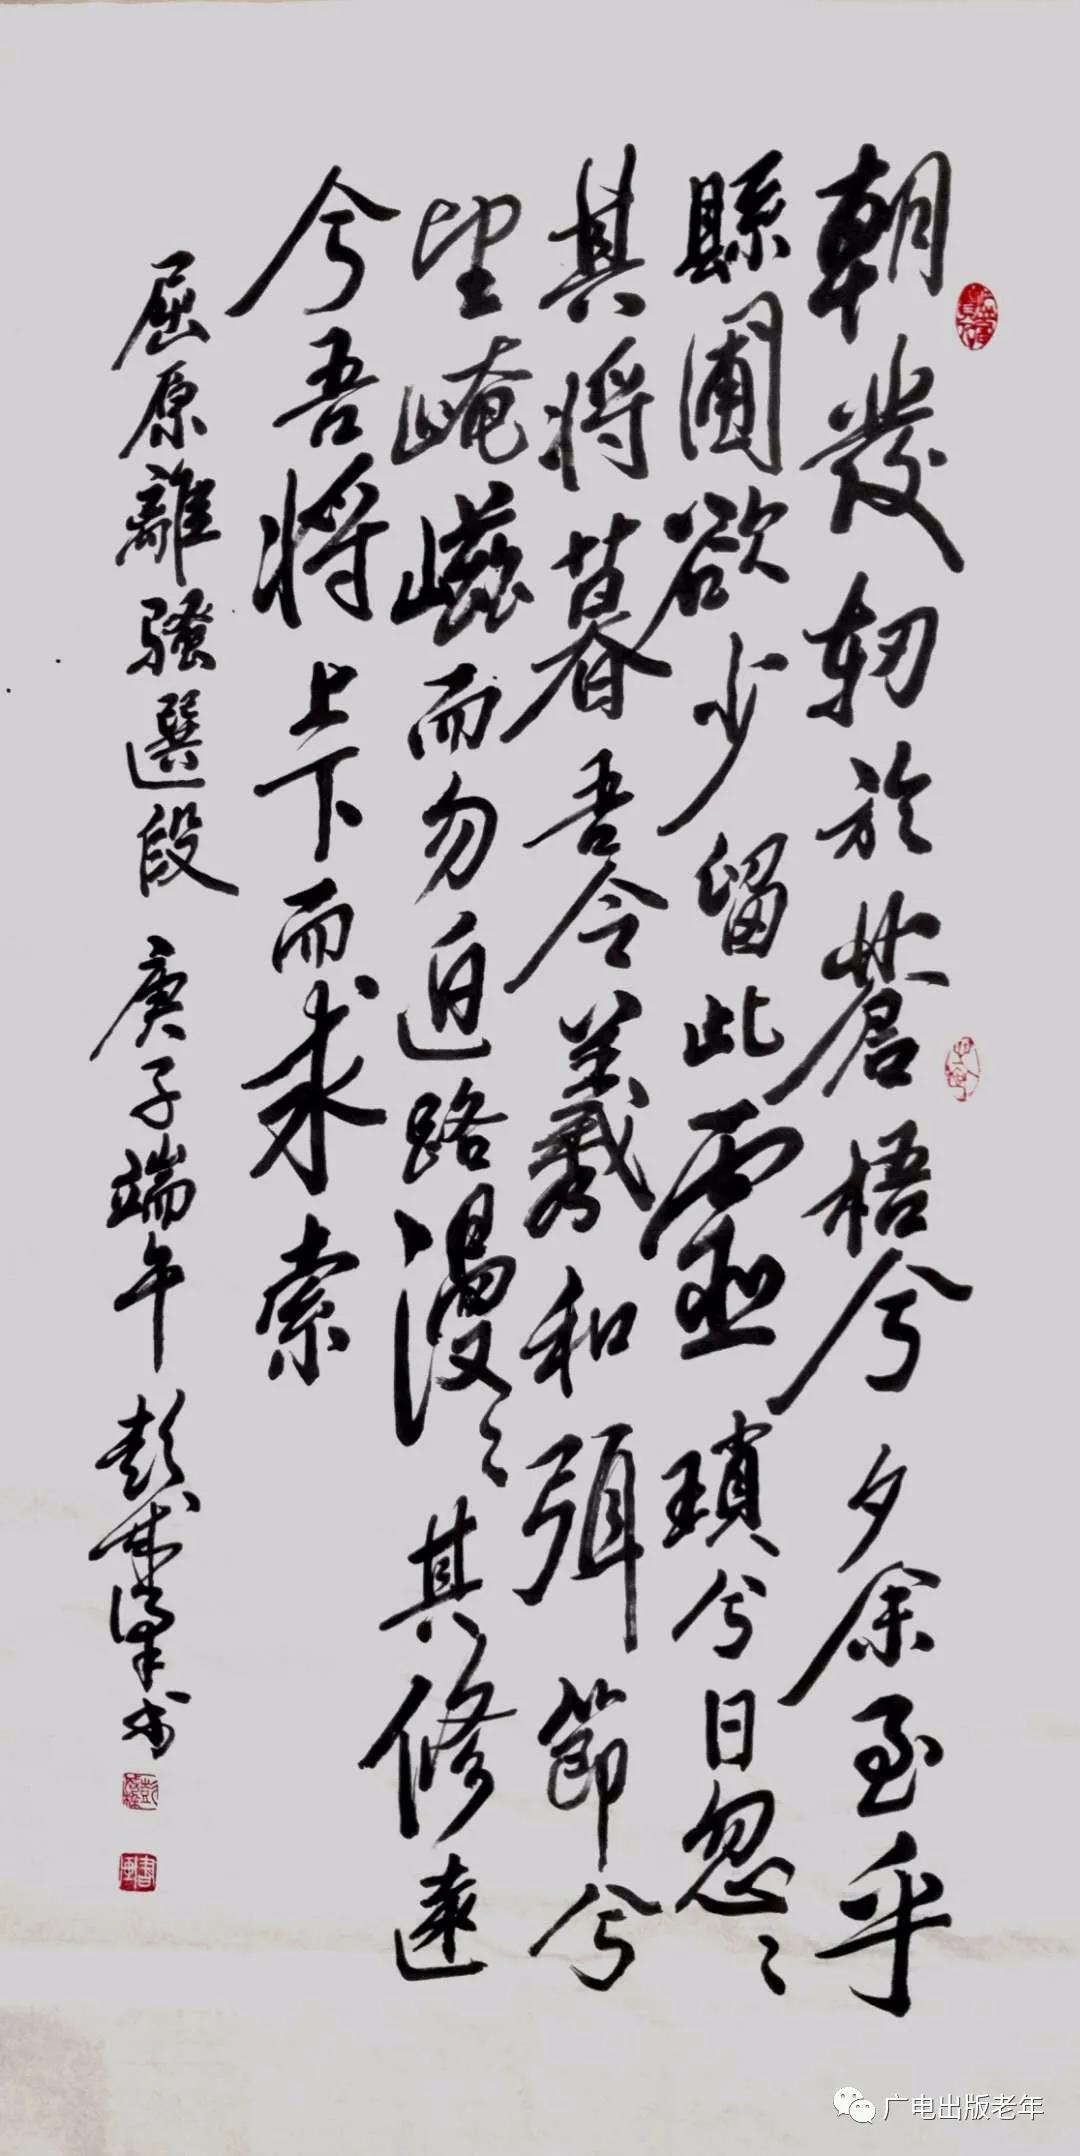 朝發軔於蒼梧兮夕余至乎
縣圃欲少留此靈瑣兮日忽〻
其將暮吾令羲和弭節兮
望崦嵫而勿迫路漫〻其修遠
兮吾將上下而求索
屈原離騷選段 庚子端午 彭 書
广电出版老年